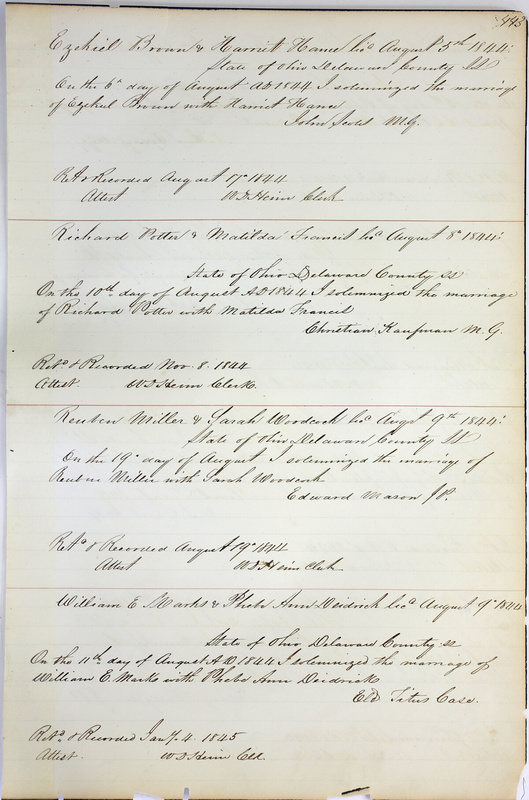 443
Ezekiel Brown & Harriet Hance lic August 5th 1844:
State of Ohio Delaware County SS
On the 6th day of August AD 1844 I solemnized the marriage
of Ezekiel Brown with Harriet Hance
John Scott M.G.
Retd & Recorded August 17th 1844
Attest W D Heim Clerk
Richard Potter & Matilda Francis licd August 8th 1844:
State of Ohio Delaware County SS
On the 10th day of August A.D 1844 I solemnized the marriage
of Richard Potter with Matilda Francis
Christian Kaufman M.G.
Retd & Recorded Nov. 8. 1844
Attest. W D Heim Clerk
Reuben Miller & Sarah Woodcock licd Augt 9th 1844:
State of Ohio Delaware County SS
On the 19th day of August I solemnized the marriage of
Reuben Miller with Sarah Woodcock
Edward Mason J.P.
Retd & Recorded August 19th 1844
Attest W D Heim Clerk
William E. Marks & Phebe Ann Deidrick licd August 9th 1844
State of Ohio Delaware County SS
On the 11th day of August A.D. 1844 I solemnized the marriage of
William E. Marks with Phebe Ann Deidrick
Eld Titus Case.
Retd & Recorded Jany. 4. 1845
Attest. W D Heim Clk.